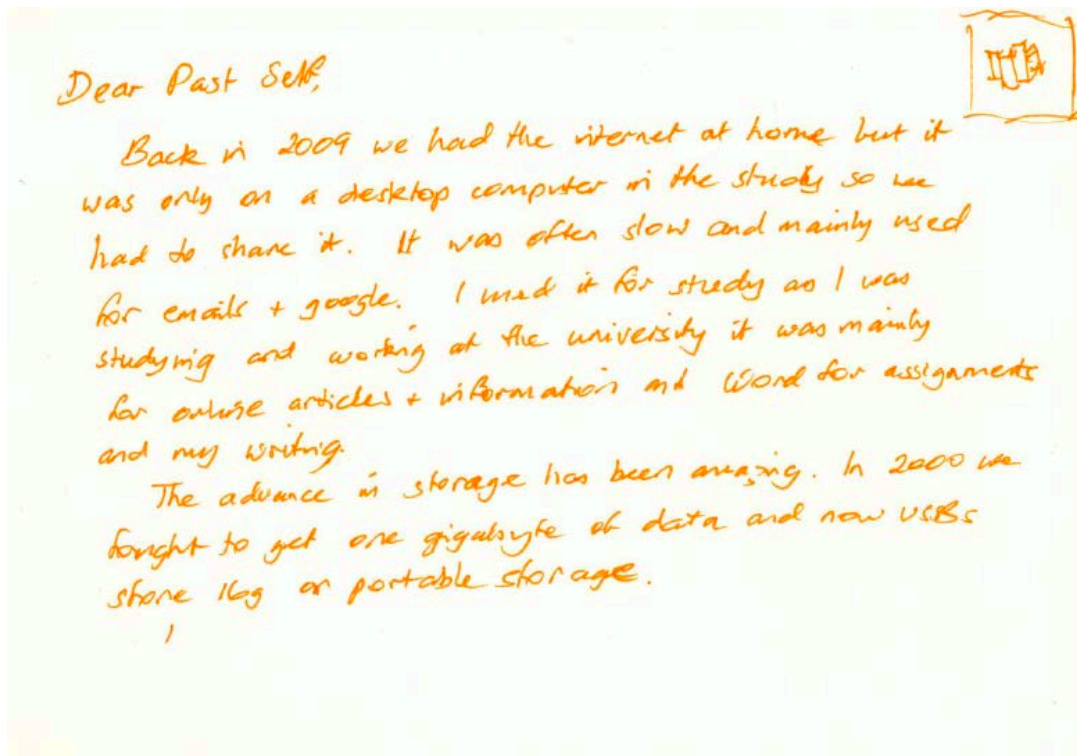 Dear Past Self,
Back in 2009 we had the internet at home but it
was only on a desktop computer in the study so we
had to share it. It was often slow and mainly used
for emails + google. I used it for study as I was
studying and working at the university it was mainly
for online articles + information and Word for assignments
and my writing.
The advance in storage has been amazing. In 2000 we
fought to get one gigabyte of data and now USBs
store 16g or portable storage.
I